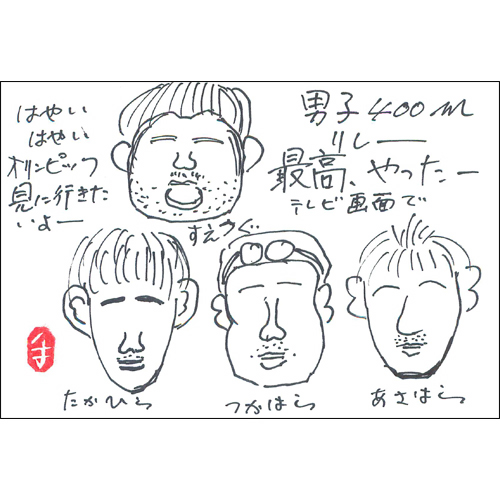 はやい
はやい
オリンピック
見に行きた
いよー
男子400m
リレー
最高、やったー
テレビ画面で
すえつぐ
たかひら
つかはら
あさはら